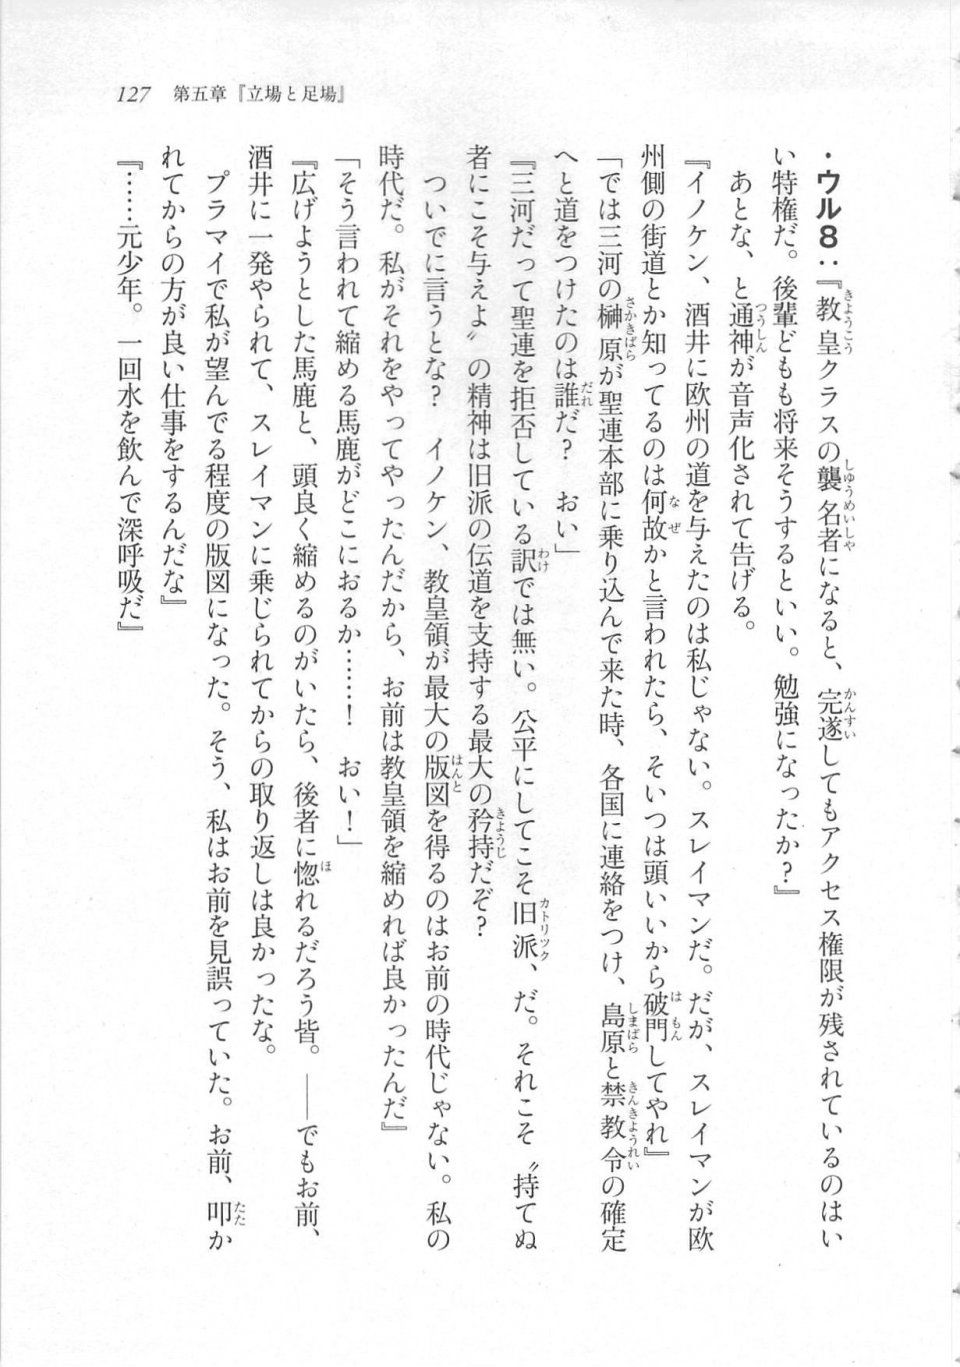 127　第五章『立場と足場』
・ウル8：『教皇クラスの襲名者になると、完遂してもアクセス権限が残されているのはい
い特権だ。後輩どもも将来そうするといい。勉強になったか？』
　あとな、と通神が音声化されて告げる。
『イノケン、酒井に欧州の道を与えたのは私じゃない。スレイマンだ。だが、スレイマンが欧
州側の街道とか知ってるのは何故かと言われたら、そいつは頭いいから破門してやれ』
「では三河の榊原が聖連本部に乗り込んで来た時、各国に連絡をつけ、島原と禁教令の確定
へと道をつけたのは誰だ？　おい」
『三河だって聖連を拒否している訳では無い。公平にしてこそ旧派、だ。それこそ〝持てぬ
者にこそ与えよ〟の精神は旧派の伝道を支持する最大の矜持だぞ？
　ついでに言うとな？　イノケン、教皇領が最大の版図を得るのはお前の時代じゃない。私の
時代だ。私がそれをやってやったんだから、お前は教皇領を縮めれば良かったんだ』
「そう言われて縮める馬鹿がどこにおるか……！　おい！」
『広げようとした馬鹿と、頭良く縮めるのがいたら、後者に惚れるだろう皆。――でもお前、
酒井に一発やられて、スレイマンに乗じられてからの取り返しは良かったな。
　プラマイで私が望んでる程度の版図になった。そう、私はお前を見誤っていた。お前、叩か
れてからの方が良い仕事をするんだな』
『……元少年。一回水を飲んで深呼吸だ』